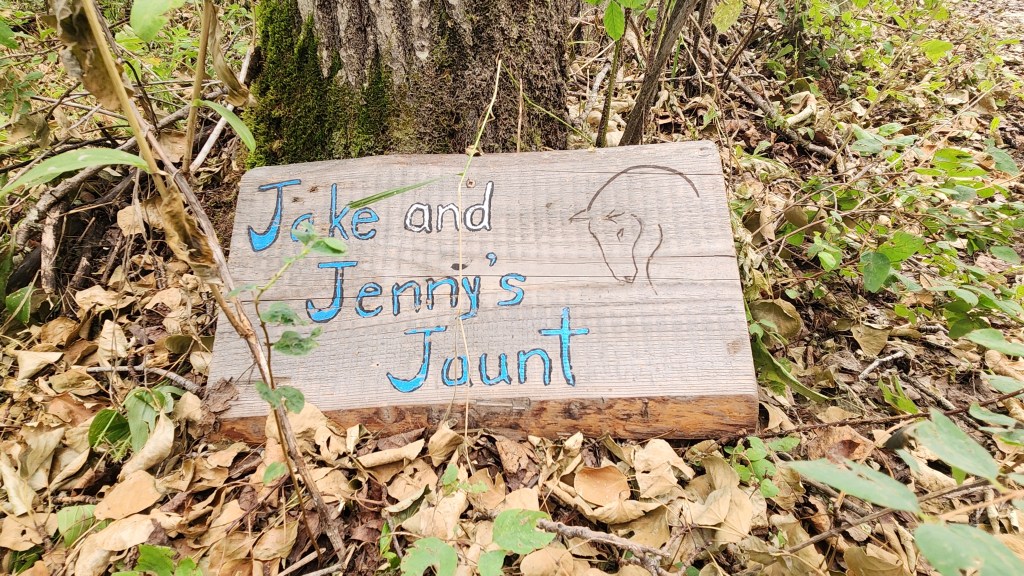 Jake and
Jenny's
Jaunt